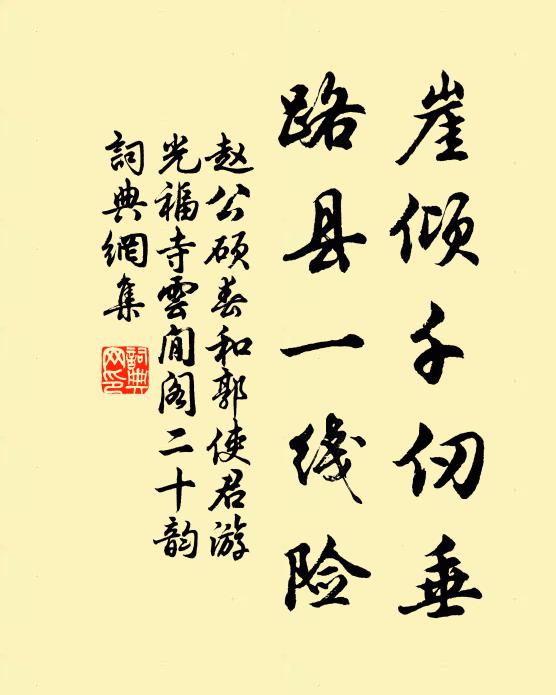 崖倾千仞垂
路县一线险
赵公硕奉和郭使君游
光福寺雲间阁二十韵
詞典網集
詞典网印